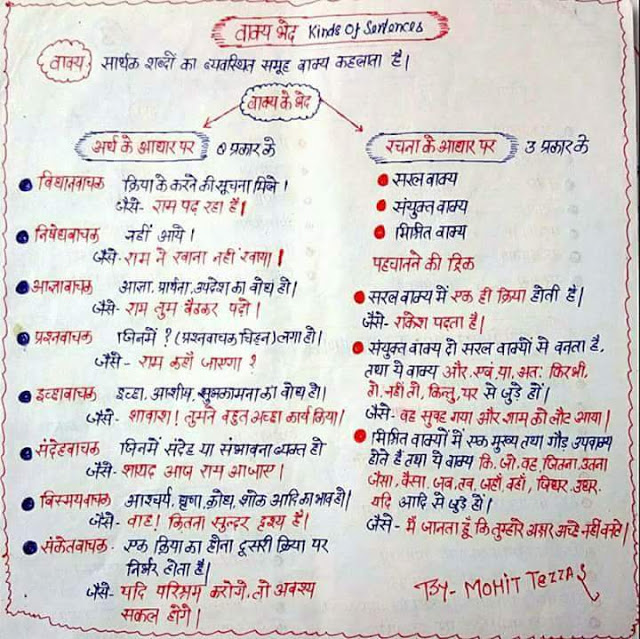 वाक्य भेद Kinds Of Sentences
वाक्य सार्थक शब्दों का व्यवस्थित समूह वाक्य कहलाता है।
वाक्य के भेद
अर्थ के आधार पर 8 प्रकार के
विधानवाचक क्रिया के करने की सूचना मिले।
जैसे- राम पढ़ रहा है।
निषेधवाचक नहीं आये।
जैसे- राम ने खाना नहीं खाया।
आज्ञावाचक आज्ञा, प्रार्थना, उपदेश का बोध हो।
जैसे- राम तुम बैठकर पढ़ो।
प्रश्नवाचक जिनमें ? (प्रश्नवाचक चिह्न) लगा हो।
जैसे- राम कहाँ जाएगा ?
इच्छावाचक इच्छा, आशीष, शुभकामना का बोध हो।
जैसे- शाबाश! तुमने बहुत अच्छा कार्य किया।
संदेहवाचक जिनमें संदेह या संभावना व्यक्त हो
जैसे- शायद आज राम आजाए।
विस्मयवाचक आश्चर्य, घृणा, क्रोध, शोक आदि का भाव हो।
जैसे- वाह! कितना सुन्दर दृश्य है।
संकेतवाचक- एक क्रिया का होना दूसरी क्रिया पर
निर्भर होता है।
जैसे- यदि परिश्रम करोगे, तो अवश्य
सफल होंगे।
रचना के आधार पर 3 प्रकार के
सरल वाक्य
संयुक्त वाक्य
मिश्रित वाक्य
पहचानने की ट्रिक
सरल वाक्य में एक ही क्रिया होती है।
जैसे- राकेश पढ़ता है।
संयुक्त वाक्य दो सरल वाक्यों से बनता है,
तथा ये वाक्य और, एवं, या, अतः फिर भी,
तो, नहीं तो, किन्तु, पर से जुड़े हों।
जैसे- वह सुबह गया और शाम को लौट आया।
मिश्रित वाक्यों में एक मुख्य तथा गौड़ उपवाक्य
होते हैं तथा ये वाक्य कि, जो, वह, जितना, उतना
जैसा, वैसा, जब, तब, जहाँ, वहाँ, जिधर, उधर,
यदि आदि से जुड़े हों।
जैसे- मैं जानता हूँ कि तुम्हारे अक्षर अच्छे नहीं बनते।
By- MOHIT